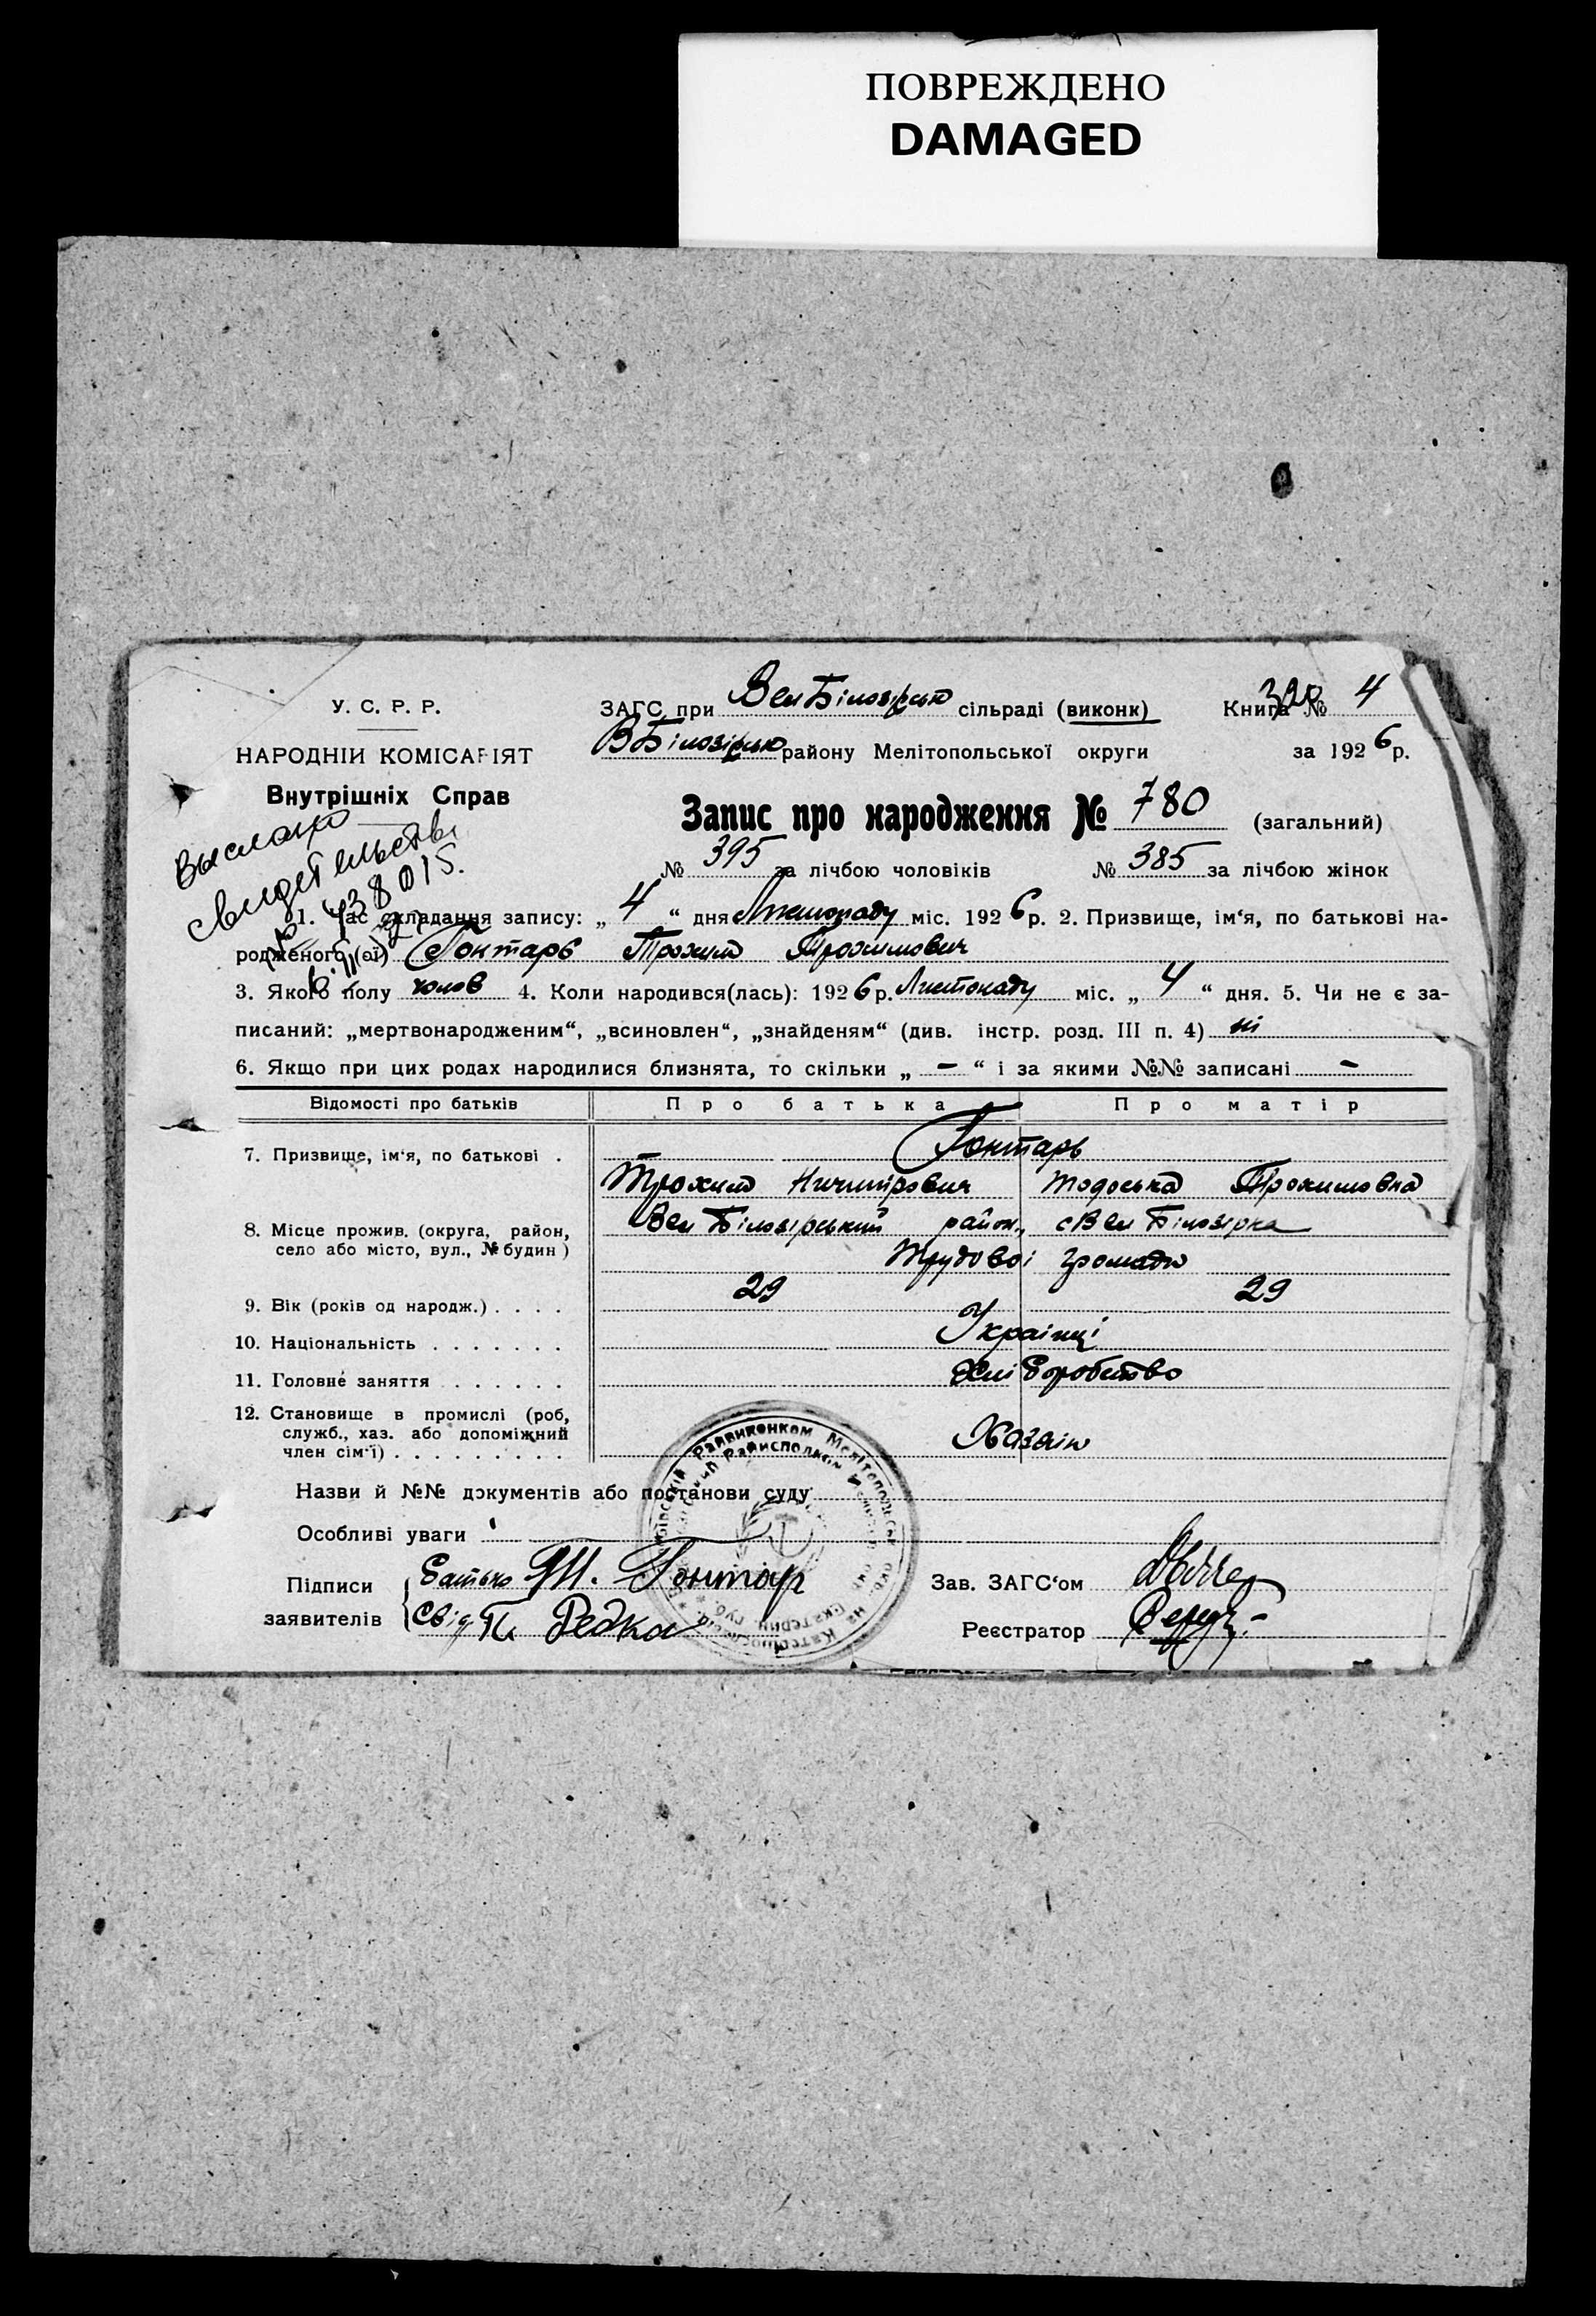 ПОВРЕЖДЕНО
DAMAGED
У. С. Р. Р.
НАРОДНІЙ КОМІСАРІЯТ
Внутрішніх Справ
Выслано
свидетельство
№ 438015.
ЗАГС при Вел Білозірськ сільраді (виконк) Книга № 4
В Білозірськ району Мелітопольської округи за 1926 р.
Запис про народження № 780 (загальний)
№ 395 за лічбою чоловіків № 385 за лічбою жінок
1. Час складання запису: „ 4 “ дня Листопаду міс. 1926 р. 2. Призвище, ім‘я, по батькові на-
родженого (ої) Гонтарь Трохим Трохимович
3. Якого полу чолов 4. Коли народився(лась): 1926 р. Листопаду міс. „ 4 “ дня. 5. Чи не є за-
писаний: „мертвонародженим“, „всиновлен“, „знайденям“ (див. інстр. розд. III п. 4) ні
6. Якщо при цих родах народилися близнята, то скільки „ – “ і за якими №№ записані –
Відомості про батьків Про батька Про матір
7. Призвище, ім‘я, по батькові . Гонтарь
Трохим Ничипірович Тодоська Трохимовна
8. Місце прожив. (округа, район, Вел Білозірський район, с Вел Білозірка
село або місто, вул., № будин ) Трудової громади
9. Вік (років од народж.) . . . . 29 29
10. Національність . . . . . . . Українці
11. Головне заняття . . . . . . Хліборобство
12. Становище в промислі (роб,
служб., хаз. або допоміжний
член сім‘ї) . . . . . . . . . Хазяін
Назви й №№ документів або постанови суду
Особливі уваги
Підписи Батько Т. Гонтар Зав. ЗАГС‘ом
заявителів Свід П. Редка Реєстратор